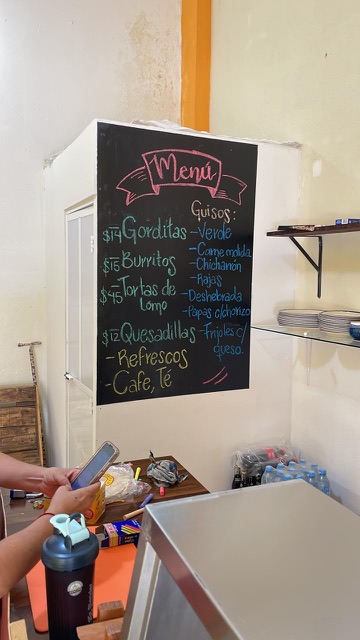 Menú
$14 Gorditas
$15 Burritos
$45 Tortas de
lomo
$12 Quesadillas
- Refrescos
- Cafe, Té
Guisos:
- Verde
- Carne molida
- Chicharrón
- Rajas
- Deshebrada
- Papas c/chorizo
- Frijoles c/
queso.